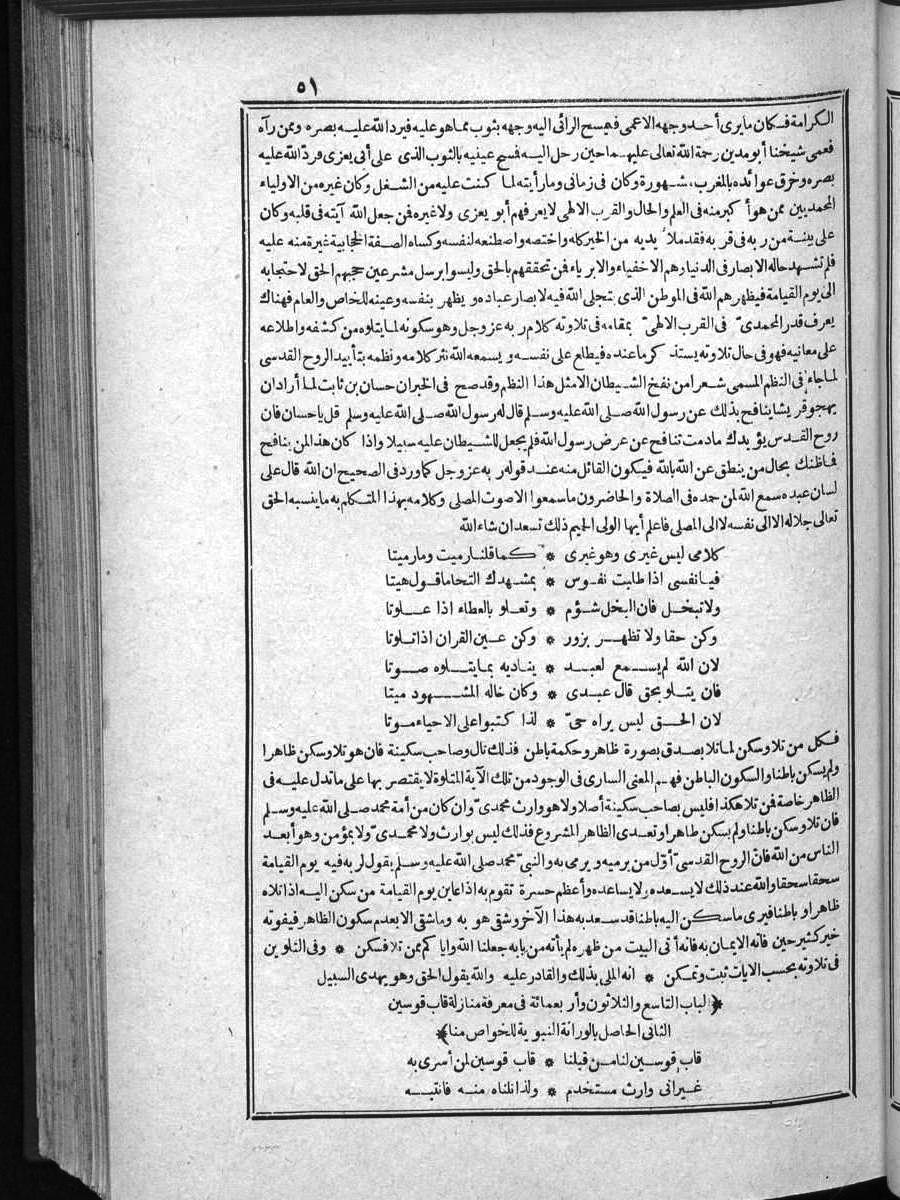 ٥١
الكرامة فكان ما يرى أحد وجهه الا عمى فيمسح الرائى اليه وجهه بثوب مما هو عليه فيرد الله عليه بصره وممن رآه
فعمى شيخنا أبو مدين رحمة الله تعالى عليهما حين رحل اليه فمسح عينيه بالثوب الذى على أبى يعزى فردّ الله عليه
بصره وخرق عوائده بالمغرب مشهورة وكان فى زمانى وما رأيته لما كنت عليه من الشغل وكان غيره من الاولياء
المحمديين ممن هو أكبر منه فى العلم والحال والقرب الالهى لا يعرفهم أبو يعزى ولا غيره فمن جعل الله آيته فى قلبه وكان
على بينة من ربه فى قربه فقد ملأ يديه من الخير كله واختصه واصطنعه لنفسه وكساه الصفة الحجابية غيرة منه عليه
فلم تشهد حاله الابصار فى الدنيا وهم الاخفياء الابرياء فمن تحققهم بالحق وليسوا برسل مشرعين حجبهم الحق لاحتجابه
الى يوم القيامة فيظهرهم الله فى الموطن الذى يتجلى الله فيه لابصار عباده ويظهر بنفسه وعينه للخاص والعام فهناك
يعرف قدر المحمدىّ فى القرب الالهىّ بمقامه فى تلاوته كلام ربه عز وجل وهو سكونه لما يتلوه من كشفه واطلاعه
على معانيه فهو فى حال تلاوته يستذكر ما عنده فيطلع على نفسه ويسمعه الله نثر كلامه ونظمه بتأييد الروح القدسى
لما جاء فى النظم المسمى شعرا من نفخ الشيطان الا مثل هذا النظم وقد صح فى الخبر ان حسان بن ثابت لما أراد ان
يهجو قريشا ينافح بذلك عن رسول الله صلى الله عليه وسلم قال له رسول الله صلى الله عليه وسلم قل يا حسان فان
روح القدس يؤيدك ما دمت تنافح عن عرض رسول الله فلم يجعل للشيطان عليه سبيلا واذا كان هذا لمن ينافح
فما ظنك بحال من ينطق عن الله بالله فيكون القائل منه عند قوله ربه عز وجل كما ورد فى الصحيح ان الله قال على
لسان عبده سمع الله لمن حمده فى الصلاة والحاضرون ما سمعوا الا صوت المصلى وكلامه بهذا المتكلم به ما ينسبه الحق
تعالى جلاله الا الى نفسه لا الى المصلى فاعلم أيها الولى الحميم ذلك تسعد ان شاء الله
كلامى ليس غيرى وهو غيرى * كما قلنا رميت وما رميتا
فيا نفسى اذا طلبت نفوس * بمشهدك التحاما قول هيتا
ولا تبخل فان البخل شؤم * وتعلو بالعطاء اذا علوتا
وكن حقا ولا تظهر بزور * وكن عين القران اذا تلوتا
لان الله لم يسمع لعبد * يناديه بما يتلوه صوتا
فان يتلو بحق قال عبدى * وكان حاله المشهود ميتا
لان الحق ليس يراه حىّ * لذا كتبوا على الاحياء موتا
فكل من تلا وسكن لما تلا بصدق بصورة ظاهر وحكمة باطن فذلك تال وصاحب سكينة فان هو تلا وسكن ظاهرا
ولم يسكن باطنا والسكون الباطن فهم المعنى السارى فى الوجود من تلك الآية المتلوة لا يقتصر بها على ما تدل عليه فى
الظاهر خاصة فمن تلا هكذا فليس بصاحب سكينة أصلا ولا هو وارث محمدىّ وان كان من أمة محمد صلى الله عليه وسلم
فان تلا وسكن باطنا ولم يسكن ظاهرا وتعدى الظاهر المشروع فذلك ليس بوارث ولا محمدىّ ولا بمؤمن وهو أبعد
الناس من الله فانّ الروح القدسىّ أوّل من يرميه ويرمى به والنبىّ محمد صلى الله عليه وسلم يقول لربه فيه يوم القيامة
سحقا سحقا والله عند ذلك لا يسعده لا يساعده وأعظم حسرة تقوم به اذا عاين يوم القيامة من سكن اليه اذا تلاه
ظاهرا وباطنا فيرى ما سكن اليه باطنا قد سعد به هذا الآخر وشقى هو به وما شقى الا بعدم سكون الظاهر فيفوته
خير كثير حين فاته الايمان به فانه أتى البيت من ظهره لم يأته من بابه جعلنا الله واياكم ممن تلا فسكن * وفى التلوين
فى تلاوته بحسب الايات ثبت وتمكن * انه الملى بذلك والقادر عليه والله يقول الحق وهو يهدى السبيل
﴿الباب التاسع والثلاثون وأربعمائة فى معرفة منازلة قاب قوسين
الثانى الحاصل بالوراثة النبوية للخواص منا﴾
قاب قوسين لنا من قبلنا * قاب قوسين لمن أسرى به
غير انى وارث مستخدم * ولذا نلناه منه فانتبه